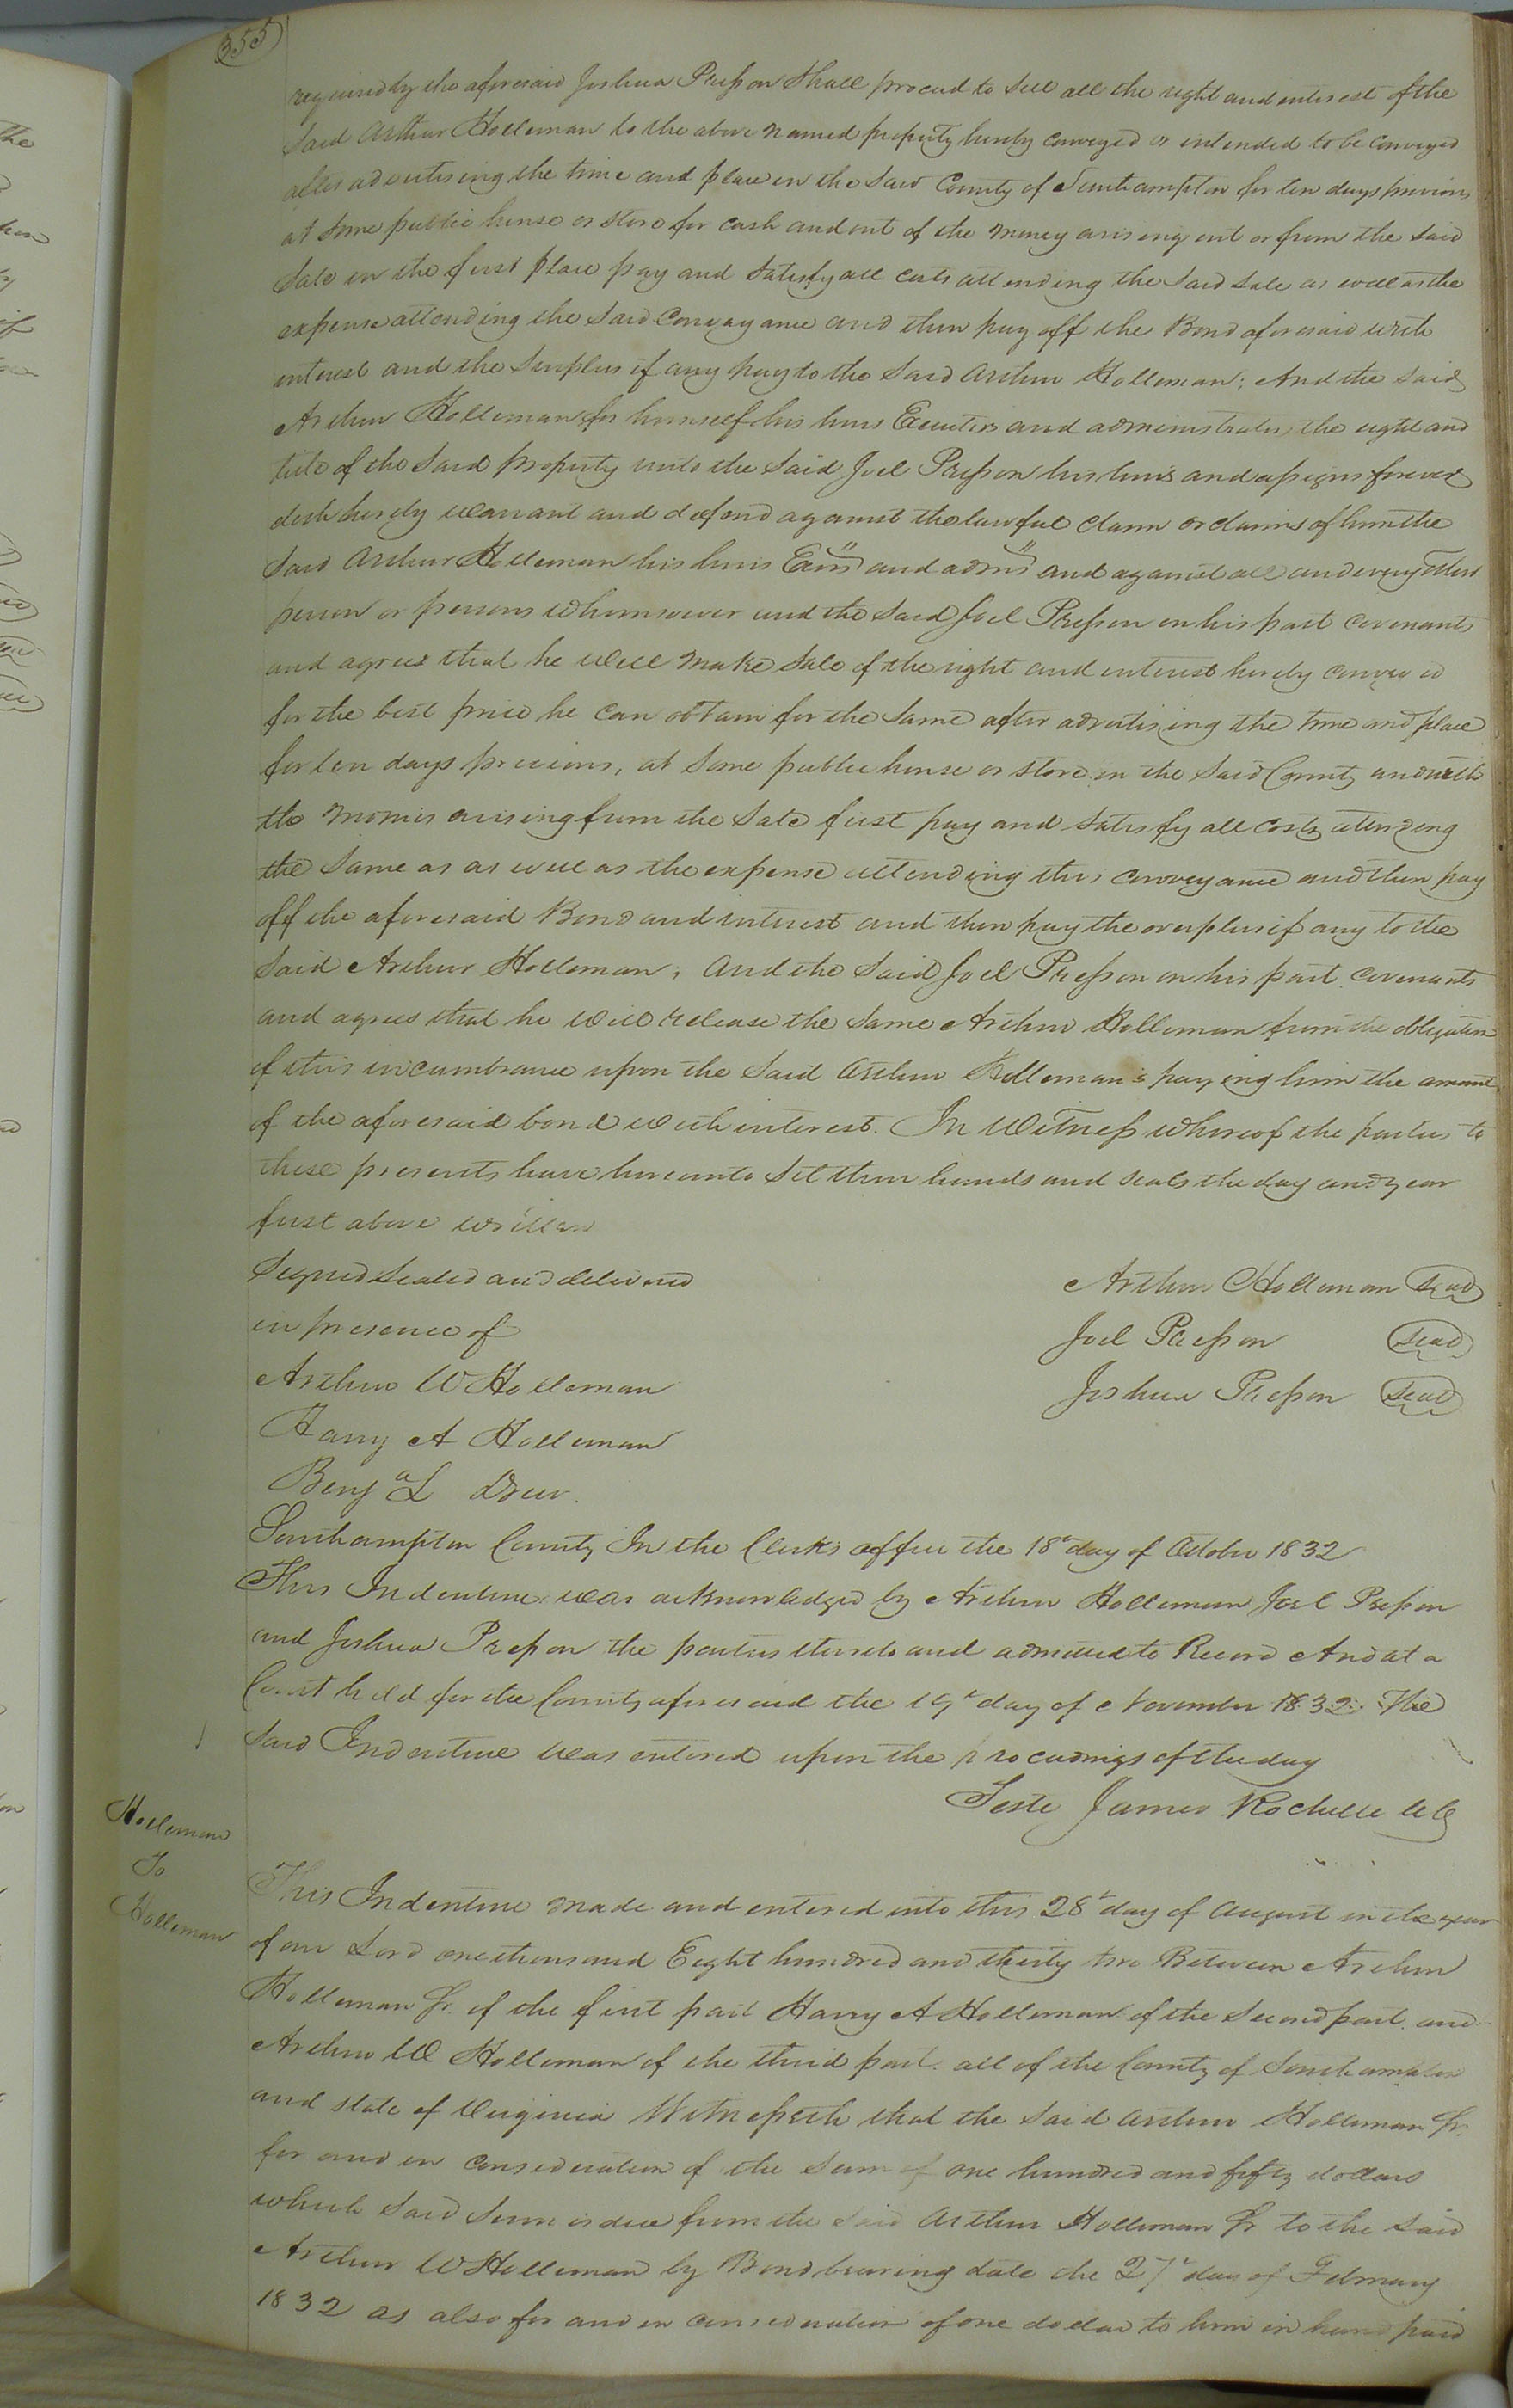 355
required by the aforesaid Joshua Presson Shall proceed to Sell all the right and interest of the
Said Arthur Holleman to the above named property hereby conveyed or intended to be conveyed
after advertising the time and place in the Said County of Southampton for ten days previous
at Some public house or store for cash and out of the money arising out or from the Said
Sale in the first place pay and Satisfy all costs attending the Said Sale as well as the
expense attending the Said conveyance and then pay off the Bond aforesaid with
interest and the Surplus if any pay to the Said Arthur Holleman; And the Said
Arthur Holleman for himself his heirs Executors and administrators the right and
title of the Said property unto the Said Joel Presson his heirs and assigns forever
doth hereby warrant and defend against the lawful claim or claims of him the
Said Arthur Holleman his heirs Exors and admrs and against all and every other
person or persons whomsoever and the Said Joel Presson on his part covenants
and agrees that he will make Sale of the right and interest hereby conveyed
for the best price he can obtain for the Same after advertizing the time and place
for ten days previous, at Some public house or store in the Said County and with
the monies arising from the Sale first pay and Satisfy all costs attending
the Same as as well as the expense attending this conveyance and then pay
off the aforesaid Bond and interest and then pay the overplus if any to the
Said Arthur Holleman; And the Said Joel Presson on his part covenants
and agrees that he will release the Same Arthur Holleman from the obligation
of this incumbrance upon the Said Arthur Holleman's paying him the amount
of the aforesaid bond with interest. In Witness whereof the parties to
these presents have hereunto Set their hands and Seals the day and year
first above written
Signed Sealed and delivered
Arthur Holleman Seal
in presence of
Joel Presson Seal
Arthur W Holleman
Joshua Presson Seal
Harry A Holleman
Benja L Drew.
Southampton County In the Clerks office the 18t day of October 1832
This Indenture was acknowledged by Arthur Holleman Joel Presson
and Joshua Presson the parties thereto and admitted to Record And at a
Court held for the County aforesaid the 19t day of November 1832. The
Said Indenture was entered upon the proceedings of the day
Teste James Rochelle CC
Holleman
To
Holleman
This Indenture made and entered into this 28t day of August in the year
of our Lord one thousand Eight hundred and thirty two Between Arthur
Holleman Sr. of the first part Harry A Holleman of the Second part. and
Arthur W Holleman of the third part. all of the County of Southampton
and State of Virginia Witnesseth that the Said Arthur Holleman Sr.
for and in consideration of the Sum of one hundred and fifty dollars
which Said Sum is due from the Said Arthur Holleman Sr to the Said
Arthur W Holleman by Bond bearing date the 27t day of February
1832 as also for and in consideration of one dollar to him in hand paid